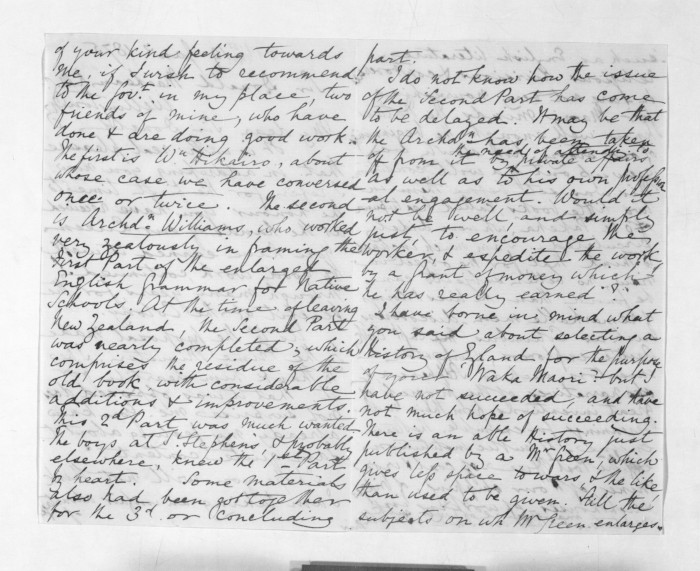 of your kind feeling towards
me, if I wish to recommend
to the Govt. in my place, two
friends of mine, who have
done & are doing good work.
The first is Wm Hikairo, about
whose case we have conversed
once or twice. The second
is Archdn. Williams, who worked
very zealously in framing the
First Part of the enlarged
English Grammar for Native
Schools. At the time of leaving
New Zealand, the Second Part
was nearly completed, which
comprises the residue of the
old book with considerable
additions & improvements.
This 2d Part was much wanted.
The boys at St Stephens, & probably
elsewhere, knew the 1st Part
by heart. Some materials
also had been got together
for the 3d. or concluding
part.
I do not know how the issue
of the Second Part has come
to be delayed. It may be that
the Archdn has been taken
off from it by the need of attending to private affairs
as well as to his own profession
al engagement. Would it
not be well, and simply
just, to encourage the
worker, & expedite the work,
by a grant of money which
he has really earned?
I have borne in mind what
you said about selecting a
History of England for the purpose
of your "Waka Maori" but I
have not succeeded, and have
not much hope of succeeding.
There is an able History just
published by a Mr Green, which
gives less space to wars & the like
than used to be given. Still the
subjects on wh Mr Green enlarges,